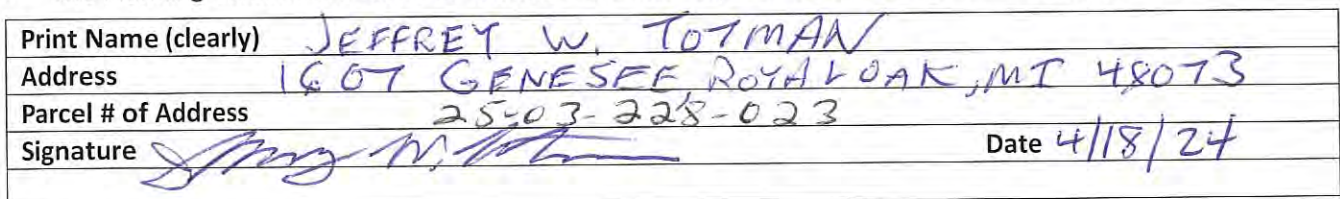 Print Name (clearly) JEFFREY W. TOTMAN
Address 1607 GENESEE, ROYAL OAK, MI 48073
Parcel # of Address 25-03-228-023
Signature Date 4/18/24